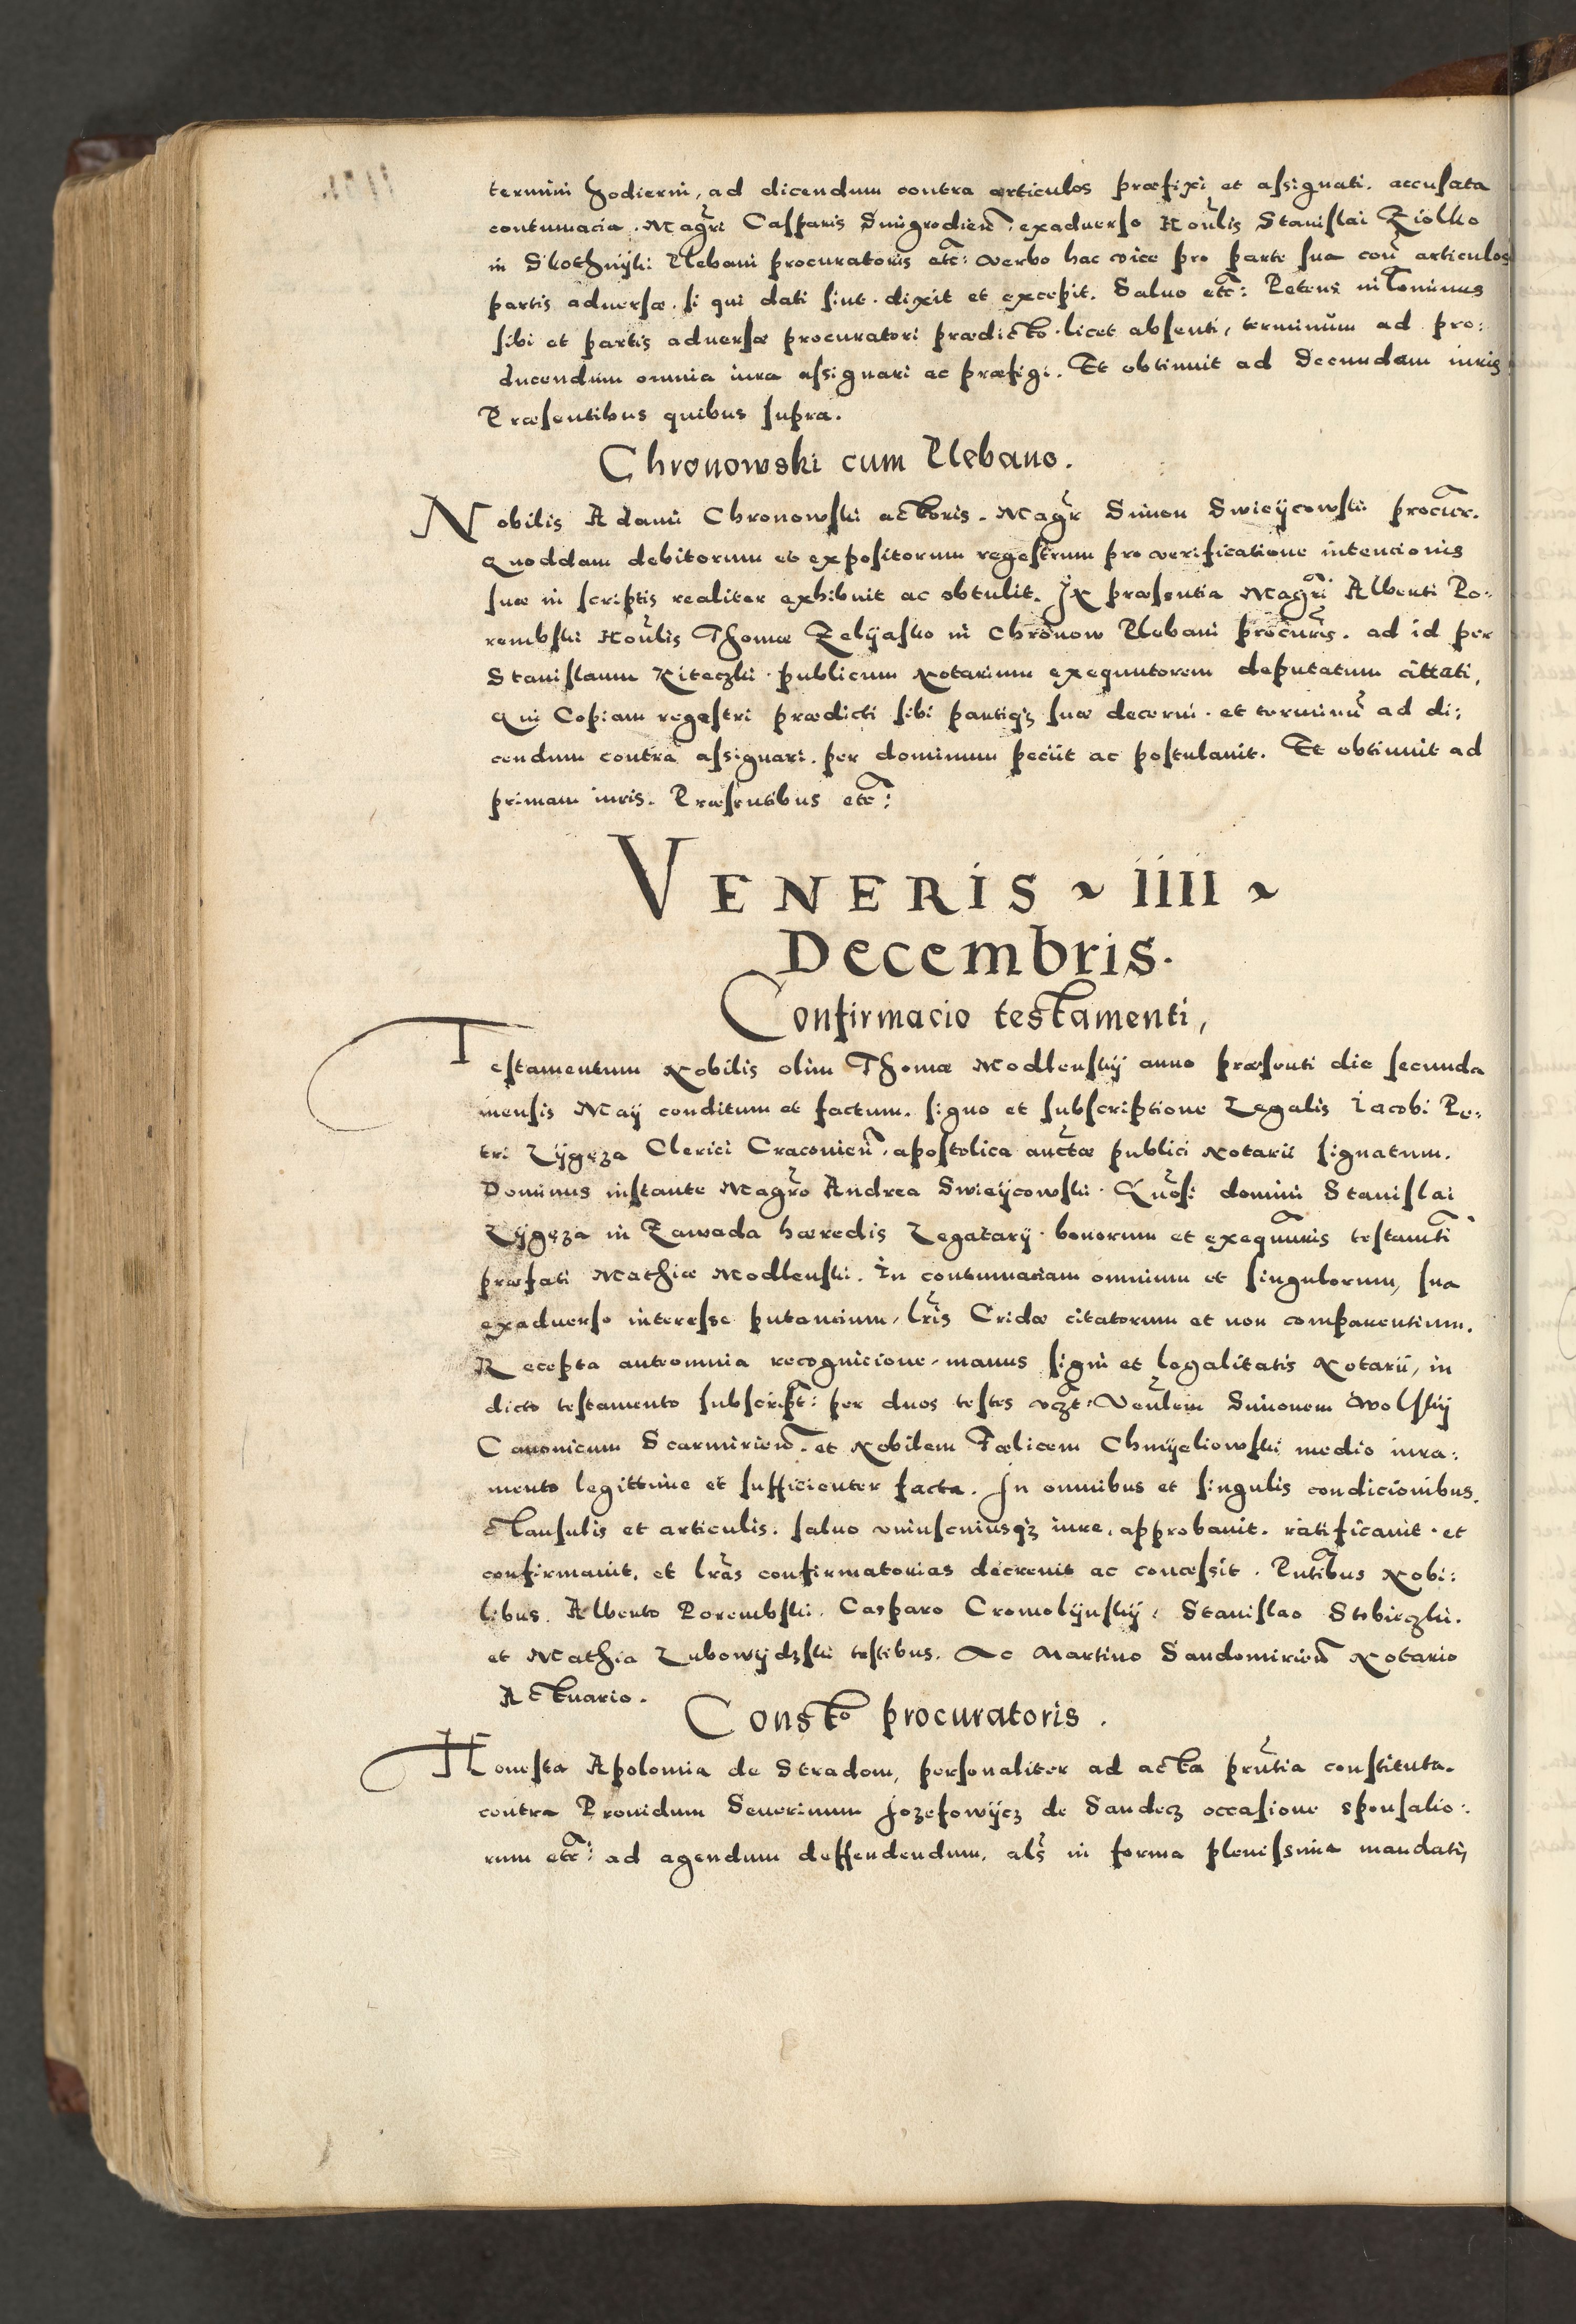 termini hodierni, ad dicendum contra articulos præfixi et assignati. accusata
contumacia. Magri Casparis Smigrodien. exaduerso Honlis Stanislai Ziolko
in Skothnyki Plebani procuratoris etc: verbo hac vice pro parte sua con articulos
partis aduersæ. si qui dati sint. dixit et excepit. Saluo etc: Petens nihlominus
sibi et partis aduersæ procuratori prædicto. licet absenti, terminum ad pro:
ducendum omnia iura assignari ac præfigi. Et obtinuit ad Secundam iuris
Præsentibus quibus supra.
Chronowski cum Plebano.
Nobilis Adami Chronowski actoris. Magr Simon Swieycowski procur.
Quoddam debitorum et expositorum regestrum pro verificatione intencionis
suæ in scriptis realiter exhibuit ac obtulit. In præsentia Magri Alberti Po:
rembski Honlis Thomæ Zelyasko in Chronow Plebani procuris. ad id per
Stanislaum Kiteczki publicum Notarium exequutorem deputatum cittati,
Qui Copiam regestri prædicti sibi partiqz suæ decerni. et terminu ad di:
cendum contra assignari. per dominum peciit ac postulauit. Et obtinuit ad
primam iuris. Præsentibus etc:
VENERIS ~ IIII ~
Decembris.
Confirmacio testamenti,
Testamentum Nobilis olim Thomæ Modlenskij anno præsenti die secunda
mensis Maij conditum et factum. signo et subscriptione Legalis Iacobi Pe:
tri Lijgęza Clerici Cracouien. apostolica auctæ publici Notarii signatum.
Dominus instante Magro Andrea Swieycowski. Gnosi domini Stanislai
Lijgęza in Zawada hæredis Legatarij. bonorum et exequuris testamti
præfati Mathiæ Modlenski. In contumaciam omnium et singulorum, sua
exaduerso interesse putancium, lris Cridæ citatorum et non comparentium.
Recepta anteomnia recognicione, manus signi et legalitatis Notarii, in
dicto testamento subscript: per duos testes vczt: Venlem Simonem Wolskij
Canonicum Scarmirien. et Nobilem Fœlicem Chmyeliowski medio iura:
mento legittime et sufficienter facta. In omnibus et singulis condicionibus.
Clausulis et articulis. saluo vniuscuiusqz iure, approbauit. ratificauit. et
confirmauit, et lras confirmatorias decreuit ac concessit. Pntibus Nobi:
libus. Alberto Porembski. Casparo Cromolynskij, Stanislao Stobieczki.
et Mathia Lubowydzski testibus. Ac Martino Sandomirien Notario
Actuario.
Consto procuratoris.
Honesta Apolonia de Stradom, personaliter ad acta prntia constituta.
contra Prouidum Seuerinum Jozefowycz de Sandecz occasione sponsalio:
rum etc: ad agendum deffendendum. als in forma plenissima mandati,